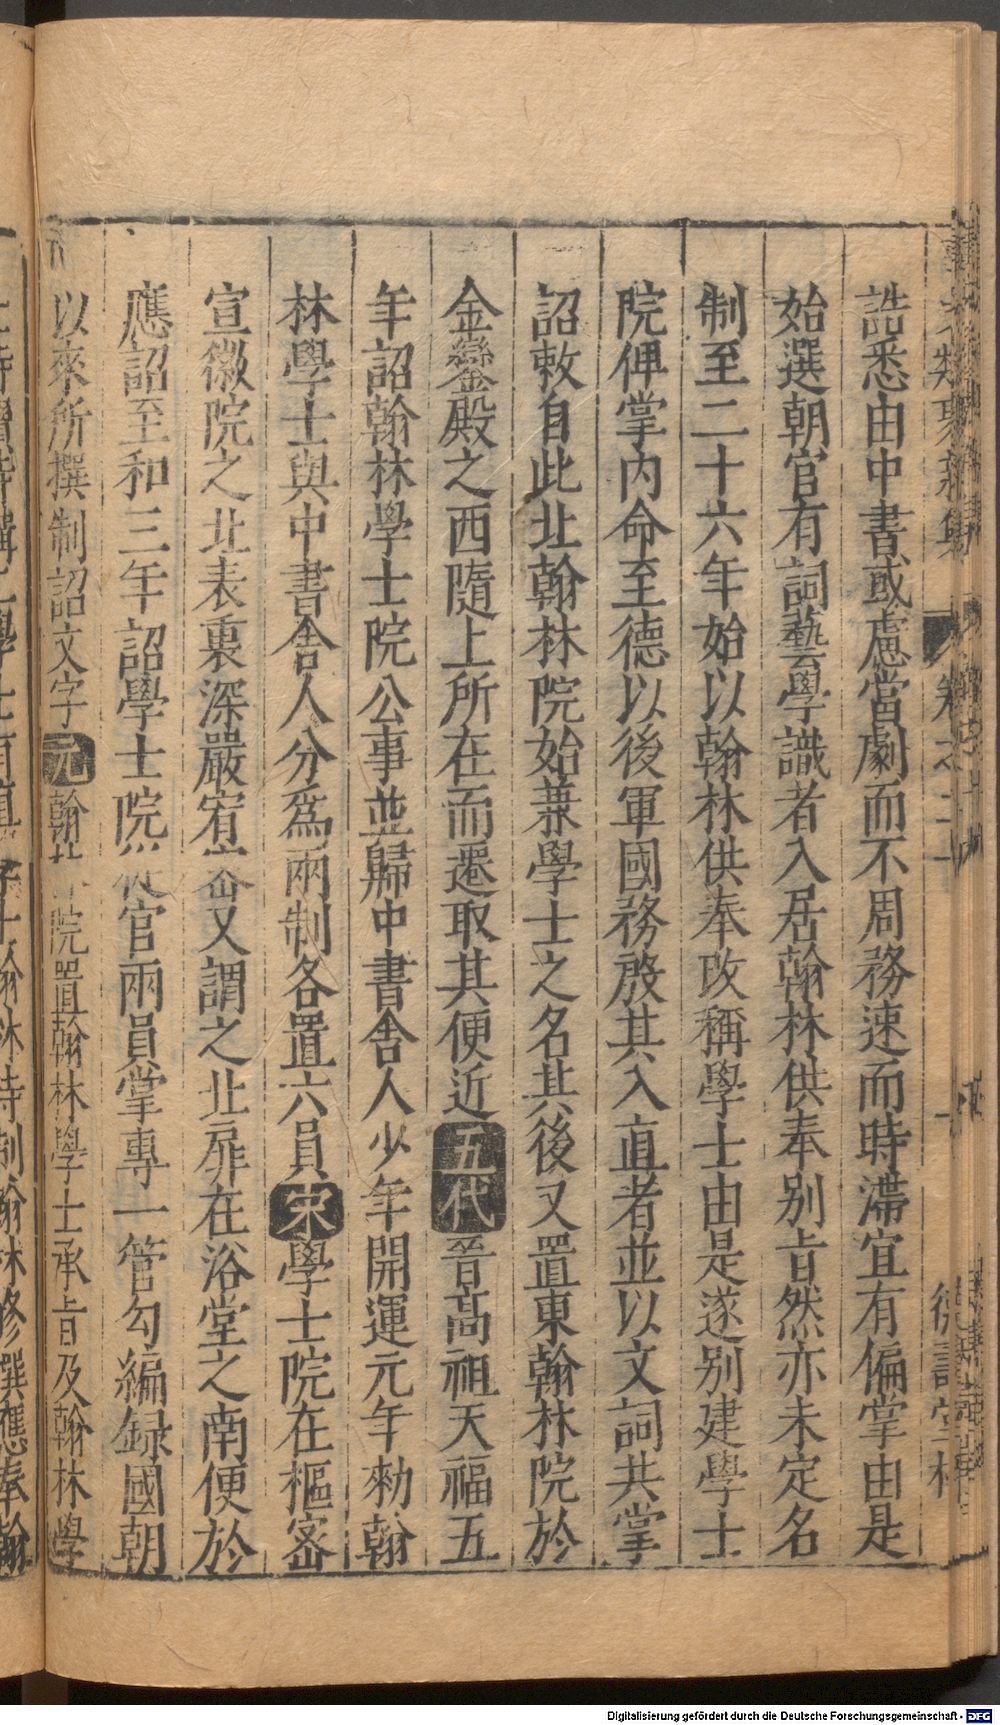 事文類聚新集
卷之二十
德壽堂梓
誥悉由中書或慮當劇而不周務速而時滯宜有偏掌由是
始選朝官有詞藝學識者入居翰林供奉别旨然亦未定名
制至二十六年始以翰林供奉改稱學士由是遂别建學士
院俾掌内命至德以後軍國務殷其入直者並以文詞共掌
詔敕自此北翰林院始兼學士之名其後又置東翰林院於
金鑾殿之西隨上所在而遷取其便近五代晉高祖天福五
年詔翰林學士院公事並歸中書舍人少年開運元年勑翰
林學士與中書舍人分爲兩制各置六員宋學士院在樞密
宣徽院之北表裏深嚴宥密又謂之北扉在浴堂之南便於
應詔至和三年詔學士院從官兩員掌專一管勾編録國朝
以來所撰制詔文字元翰林院置翰林學士承旨及翰林學
Digitalisierung gefördert durch die Deutsche Forschungsgemeinschaft - DFG